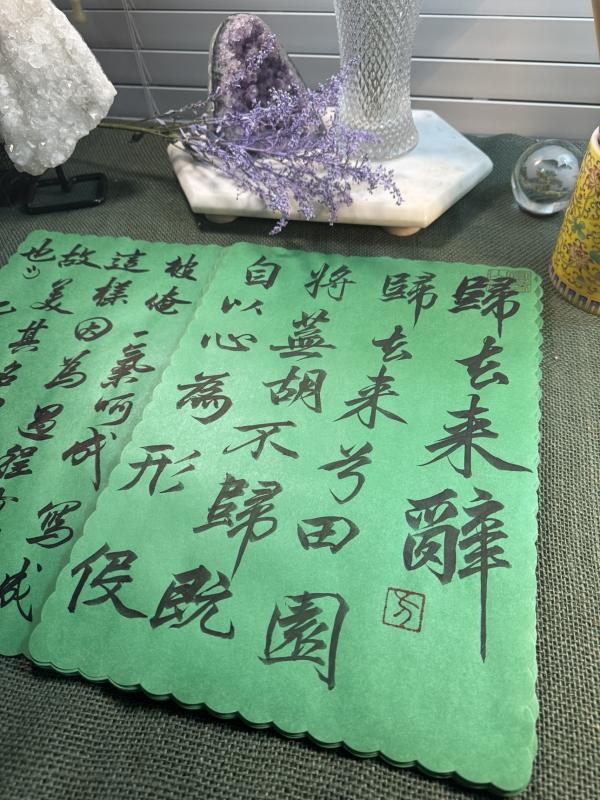 歸去来辭
歸去来兮田園
將蕪胡不歸既
自以心為形役
被俺一氣呵成寫成
這樣因為過程
故美其名
也